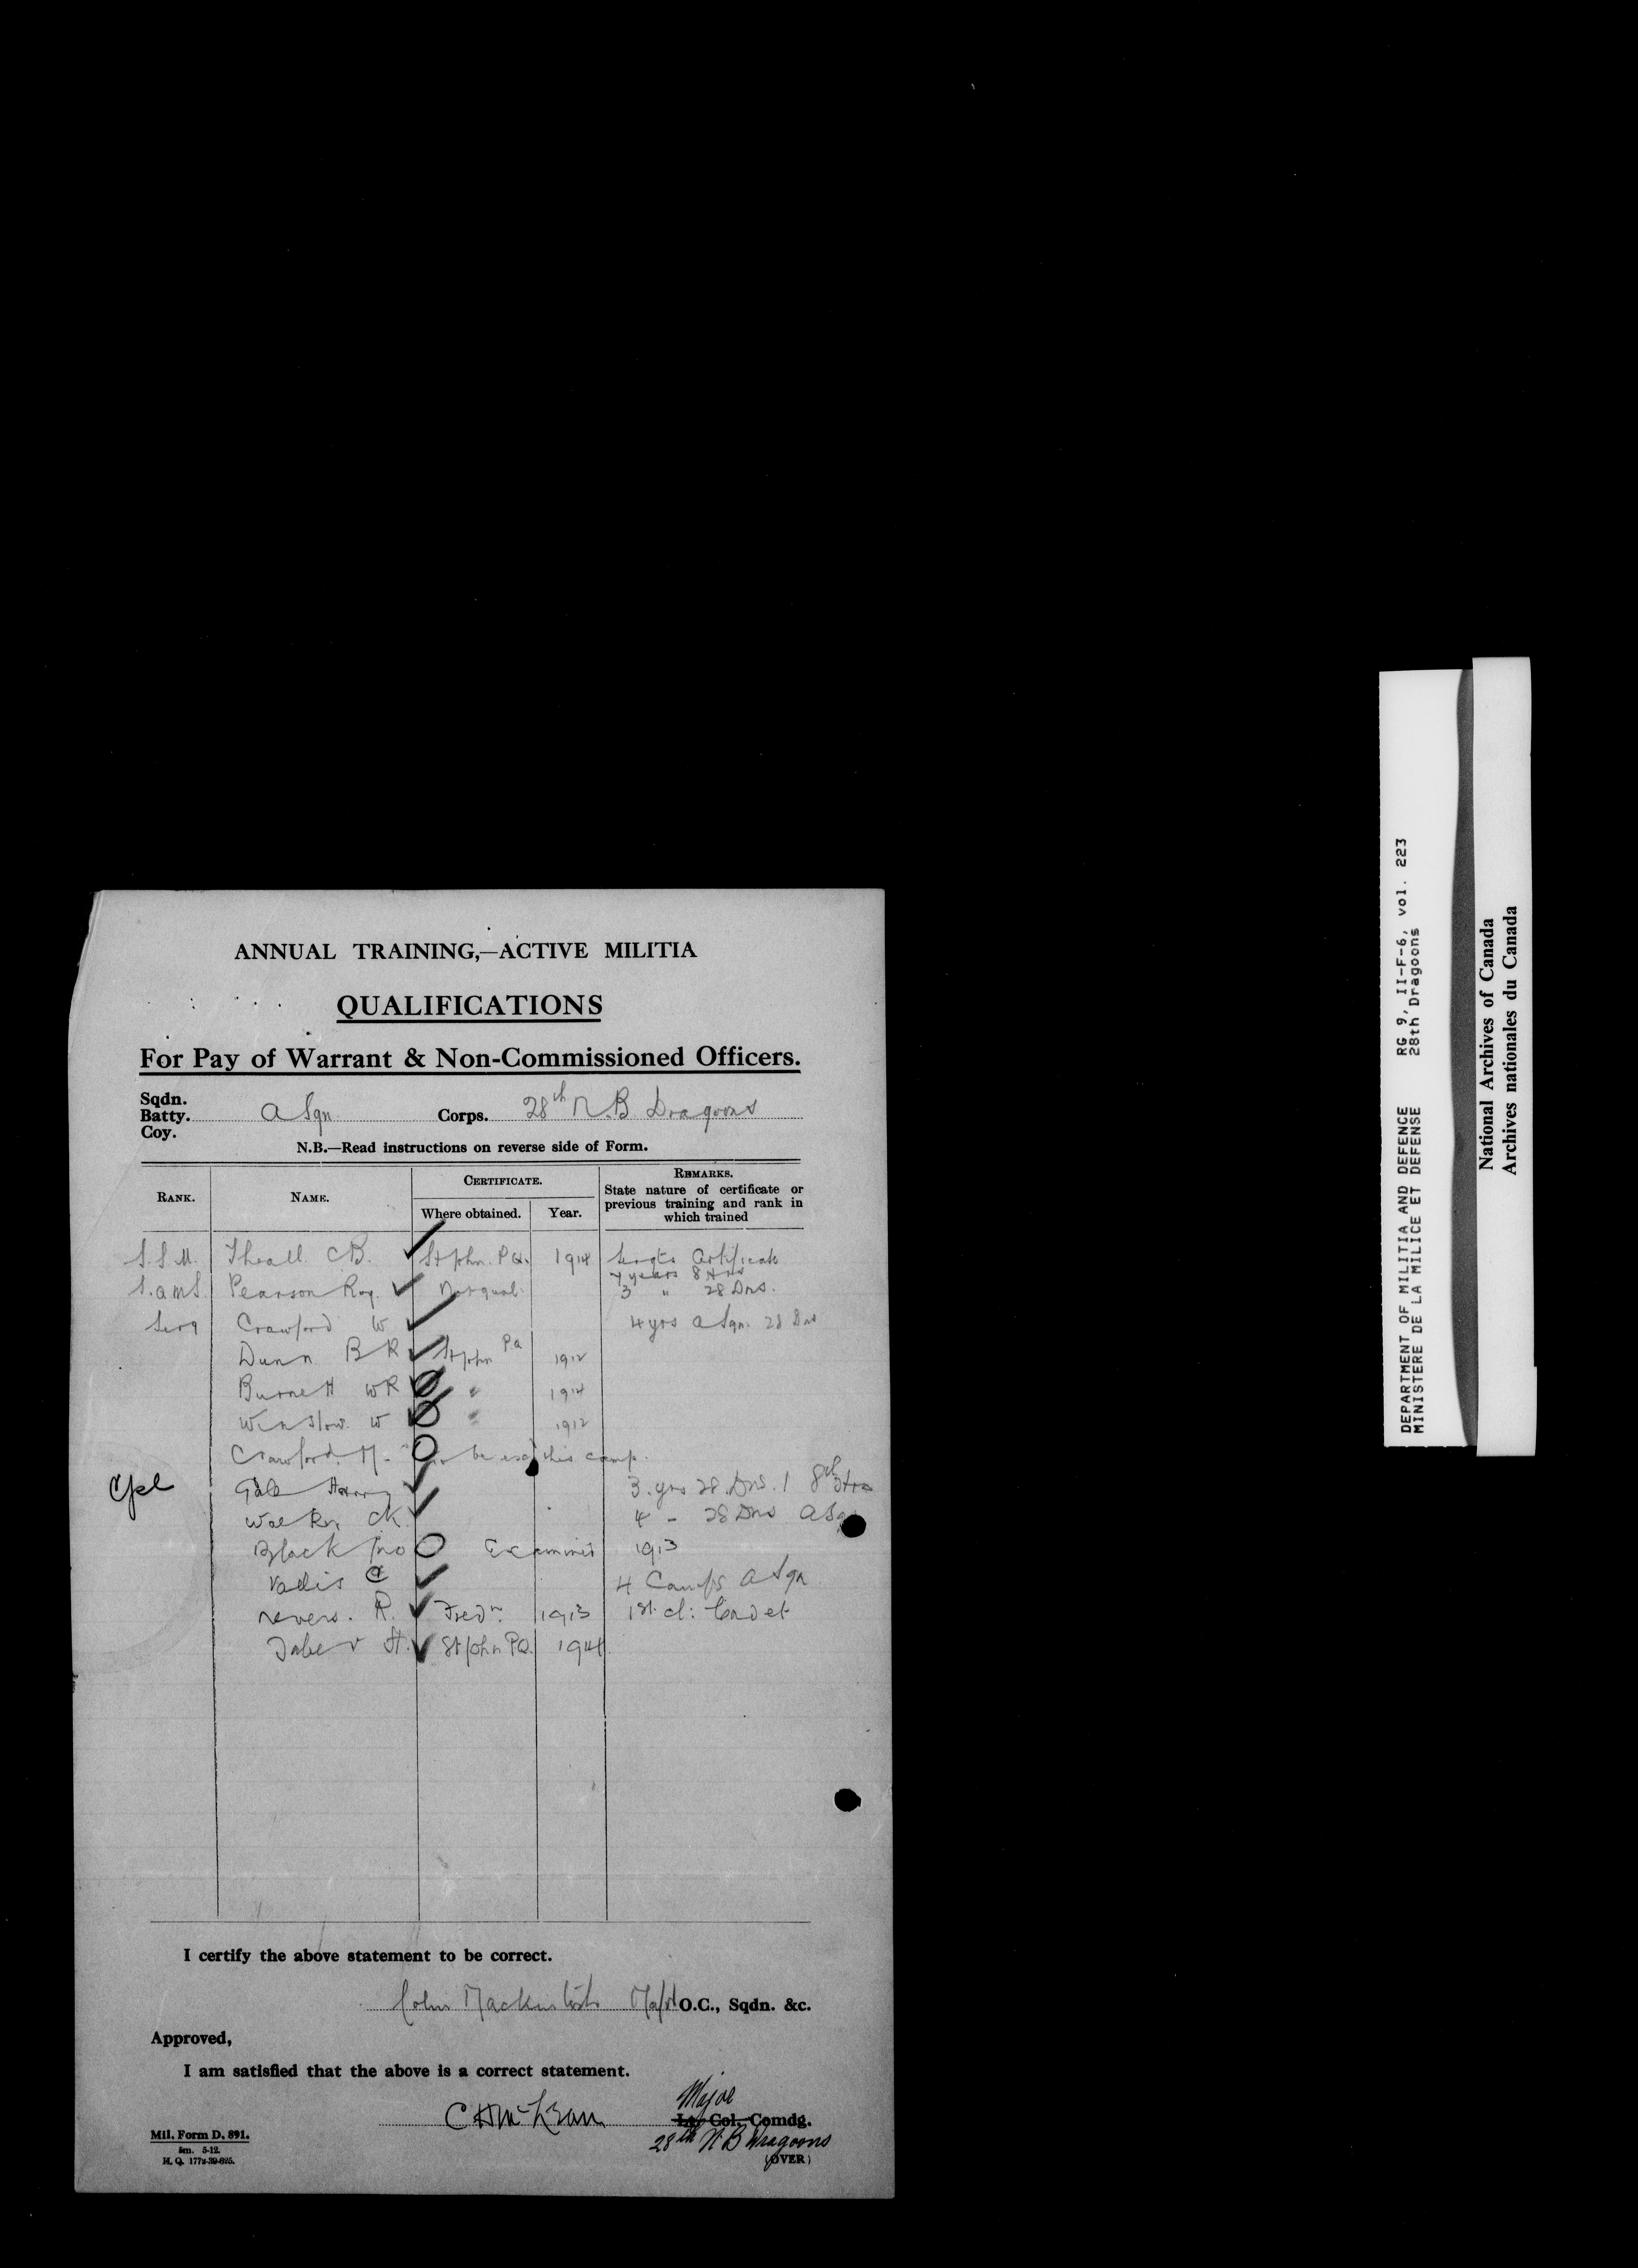 ANNUAL TRAINING,—ACTIVE MILITIA
QUALIFICATIONS
For Pay of Warrant & Non-Commissioned Officers.
Sqdn.
Batty. A Sqn Corps. 28th N.B Dragoons
Coy.
N.B.—Read instructions on reverse side of Form.
RANK. NAME. CERTIFICATE. Where obtained. Year. REMARKS. State nature of certificate or previous training and rank in which trained
S.S.M. Theall CB. St John. P.Q. 1914 Sergts Certificate
7 years 8 Hrs
Pearson Roy. Not qual. 3 " 28 Dns.
Serg Crawford W 4 yrs A Sqn. 28 Dns
Dunn B R St John P.Q 1912
Burnett WR " 1914
Winslow. W " 1912
Crawford. be this camp.
Cpl Gale Harry 3. yrs 28. Dns. 1 8th Hrs
Walker CK 4 - 28 Dns A Sqn
Black Jno Examined 1913
Vallis C 4 Camps A Sqn
Nevers. R. Fredn. 1913 1st. cl: Cadet
Taber H. St John PQ. 1914
I certify the above statement to be correct.
Colin Mackintosh Major O.C., Sqdn. &c.
Approved,
I am satisfied that the above is a correct statement.
Major
C H McLean Lt. Col. Comdg.
28th N B Dragoons
Mil. Form D. 891.
5m. 5-12.
H. Q. 1772-39-825.
(OVER)
DEPARTMENT OF MILITIA AND DEFENCE RG 9, II-F-6, vol. 223
MINISTERE DE LA MILICE ET DEFENSE 28th Dragoons
National Archives of Canada
Archives nationales du Canada